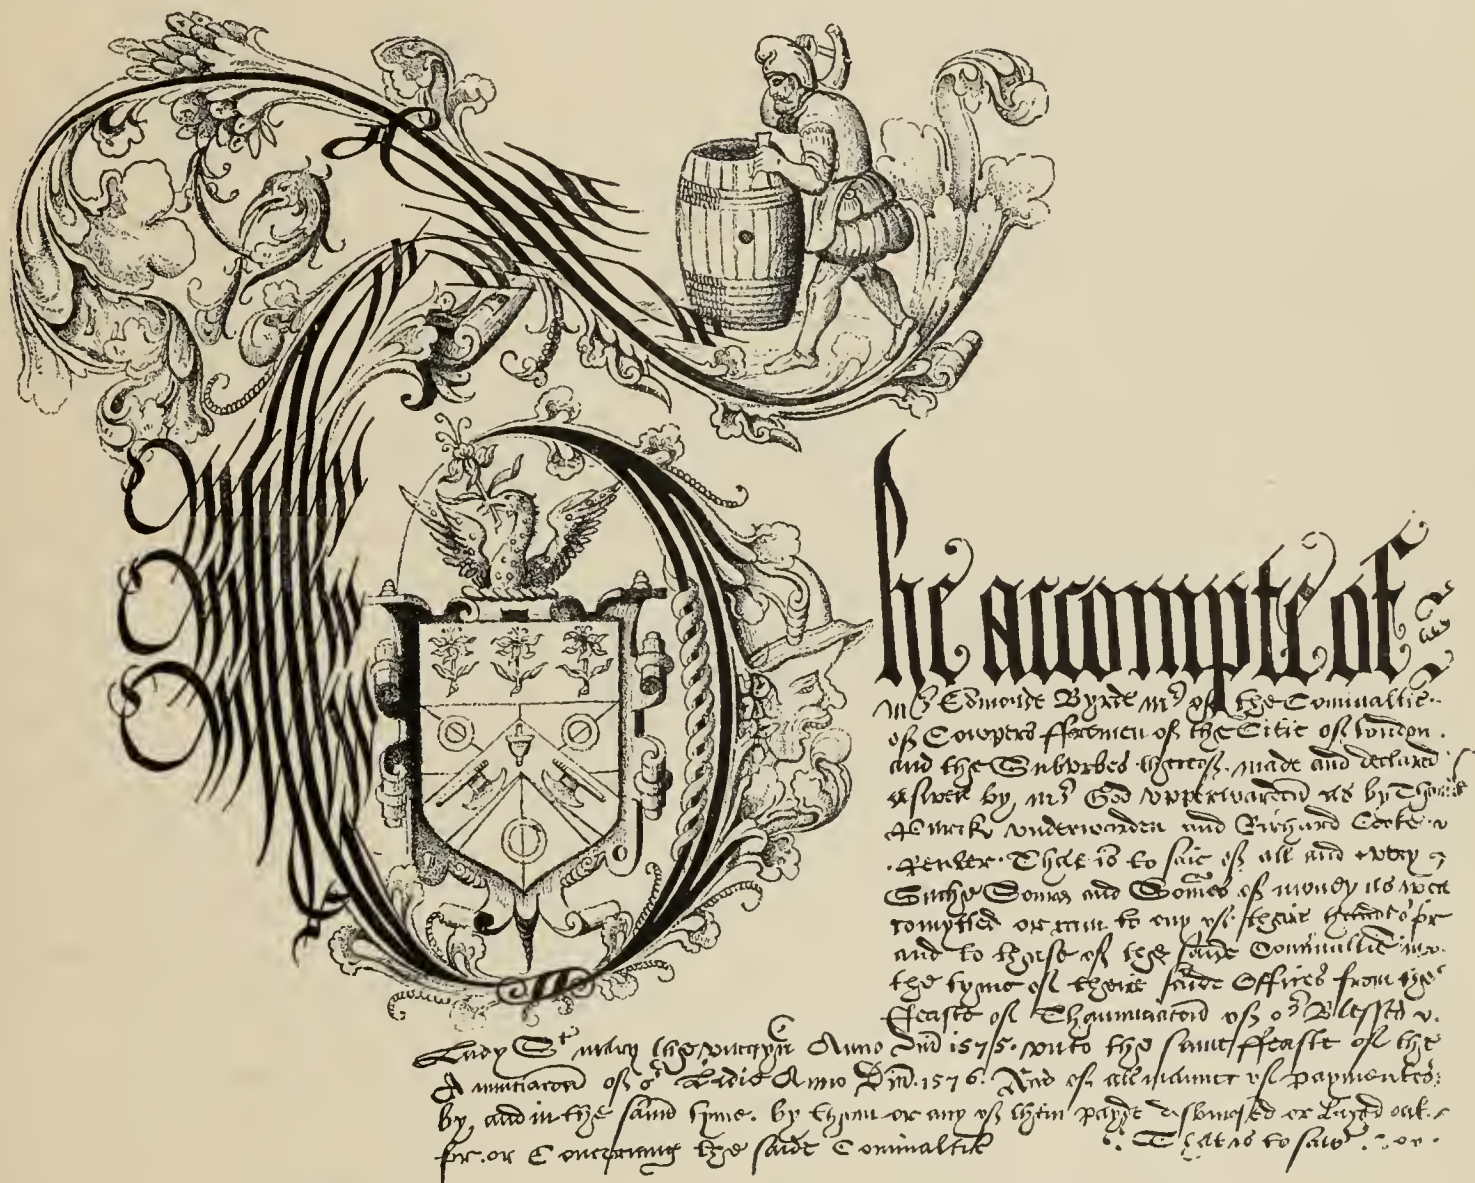 The accompte of
Mr Edmonde Byrde mr of the Cominaltie
of Cowpers ffremen of the Citie of London
and the Suburbes thereof made and declared
aswell by mr God vpperwarden as by Thomas
vnderwarden and Richard
Renter That is to saie of all and euery
Suche Some and Somes of money as wea
comytted or cam to any of theire
and to those of the saide Cominaltie in
the tyme of theire saide Offices from the
ffeaste of Thannunciacon of or Blessed
Lady St mary the virgyn Anno Dni 1575 vnto the same ffeaste of the
Annunciacon of or Ladie Anno Dni 1576 And of all manner of paymentes
by and in the same tyme by them or any of them payde disbursed or Layd out
for or Concerning the saide Cominaltie That is to saie